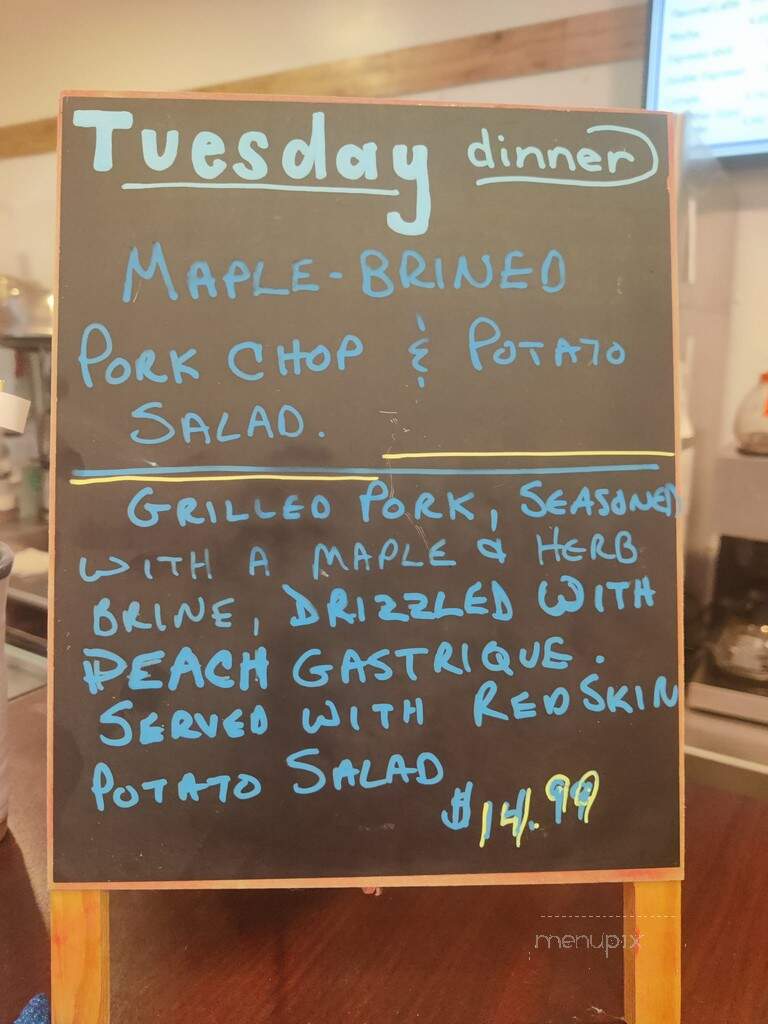 Tuesday dinner
MAPLE-BRINED
PORK CHOP & POTATO
SALAD.
GRILLED PORK, SEASONED
WITH A MAPLE & HERB
BRINE, DRIZZLED WITH
PEACH GASTRIQUE.
SERVED WITH REDSKIN
POTATO SALAD
$14.99
menupix